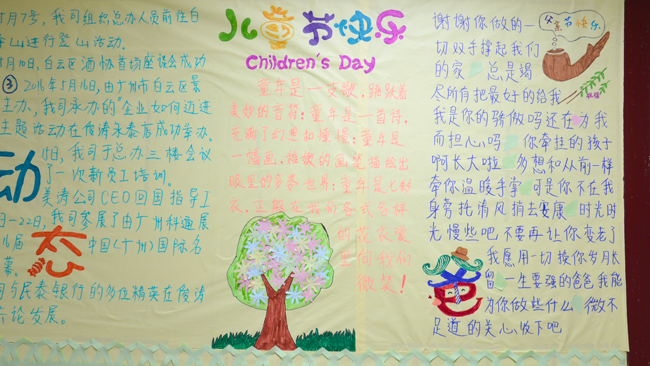 5月7号，我司组织总办人员前往白
山进行登山活动。
月10日，白云区酒协首场座谈会成功
③ 2016年5月16日，由广州市白云区景
主办，我司承办的"企业如何迈进
主题活动在俊涛永泰店成功举办。
日，我司于总办三楼会议
了一次新员工培训。
动
美涛公司CEO回国指导工
日-22日，我司参展了由广州科通展
八届
态
中国(广州)国际名
幕。
司与民泰银行的多位精英在俊涛
讨论发展。
儿童节快乐
Children's Day
童年是一支歌，跳跃着
美妙的音符；童年是一首诗，
充满了幻想和憧憬；童年是
一幅画，稚嫩的画笔描绘出
眼里的多彩世界；童年是七彩
衣，正躲在我们各式各样
的花衣裳
里向我们
微笑！
父亲节快乐
谢谢你做的一
切双手撑起我们
的家 总是竭
尽所有把最好的给我
我是你的骄傲吗还在为我
而担心吗 你牵挂的孩子
啊长大啦 多想和从前一样
牵你温暖手掌 可是你不在我
身旁托清风捎去安康 时光时
光慢些吧 不要再让你变老了
我愿用一切换你岁月长
留 一生要强的爸爸我能
为你做些什么 微不
足道的关心收下吧